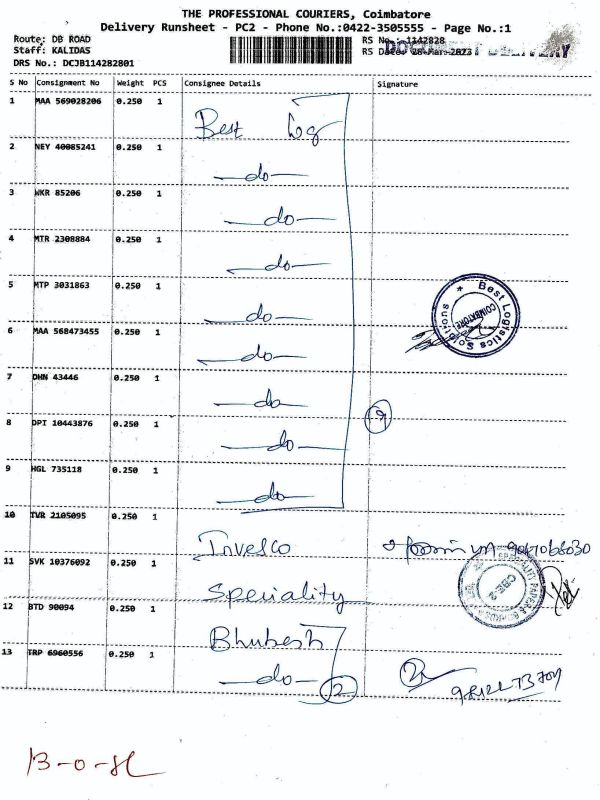 THE PROFESSIONAL COURIERS, Coimbatore
Delivery Runsheet - PC2 - Phone No.:0422-3505555 - Page No.:1
Route: DB ROAD
RS No.: 1142828
Staff: KALIDAS
RS Date: 28-Mar-2023
DOCUMENT DELIVERY
DRS No.: DCJB114282801
S No Consignment No Weight PCS Consignee Details Signature
1 MAA 569028206 0.250 1 Best Log
2 NEY 40085241 0.250 1 -do-
3 WKR 85206 0.250 1 -do-
4 MTR 2308884 0.250 1 -do-
5 MTP 3031863 0.250 1 -do-
Best Logistics Solutions * COIMBATORE
6 MAA 568473455 0.250 1 -do-
7 DHN 43446 0.250 1 -do-
8 DPI 10443876 0.250 1 -do-
9
9 HGL 735118 0.250 1 -do-
10 TVR 2105095 0.250 1 Invesco
11 SVK 10376092 0.250 1 Speciality
CBE-2
12 BTD 90094 0.250 1 Bhubesh
13 TRP 6960556 0.250 1 -do- 2
2
13-0-